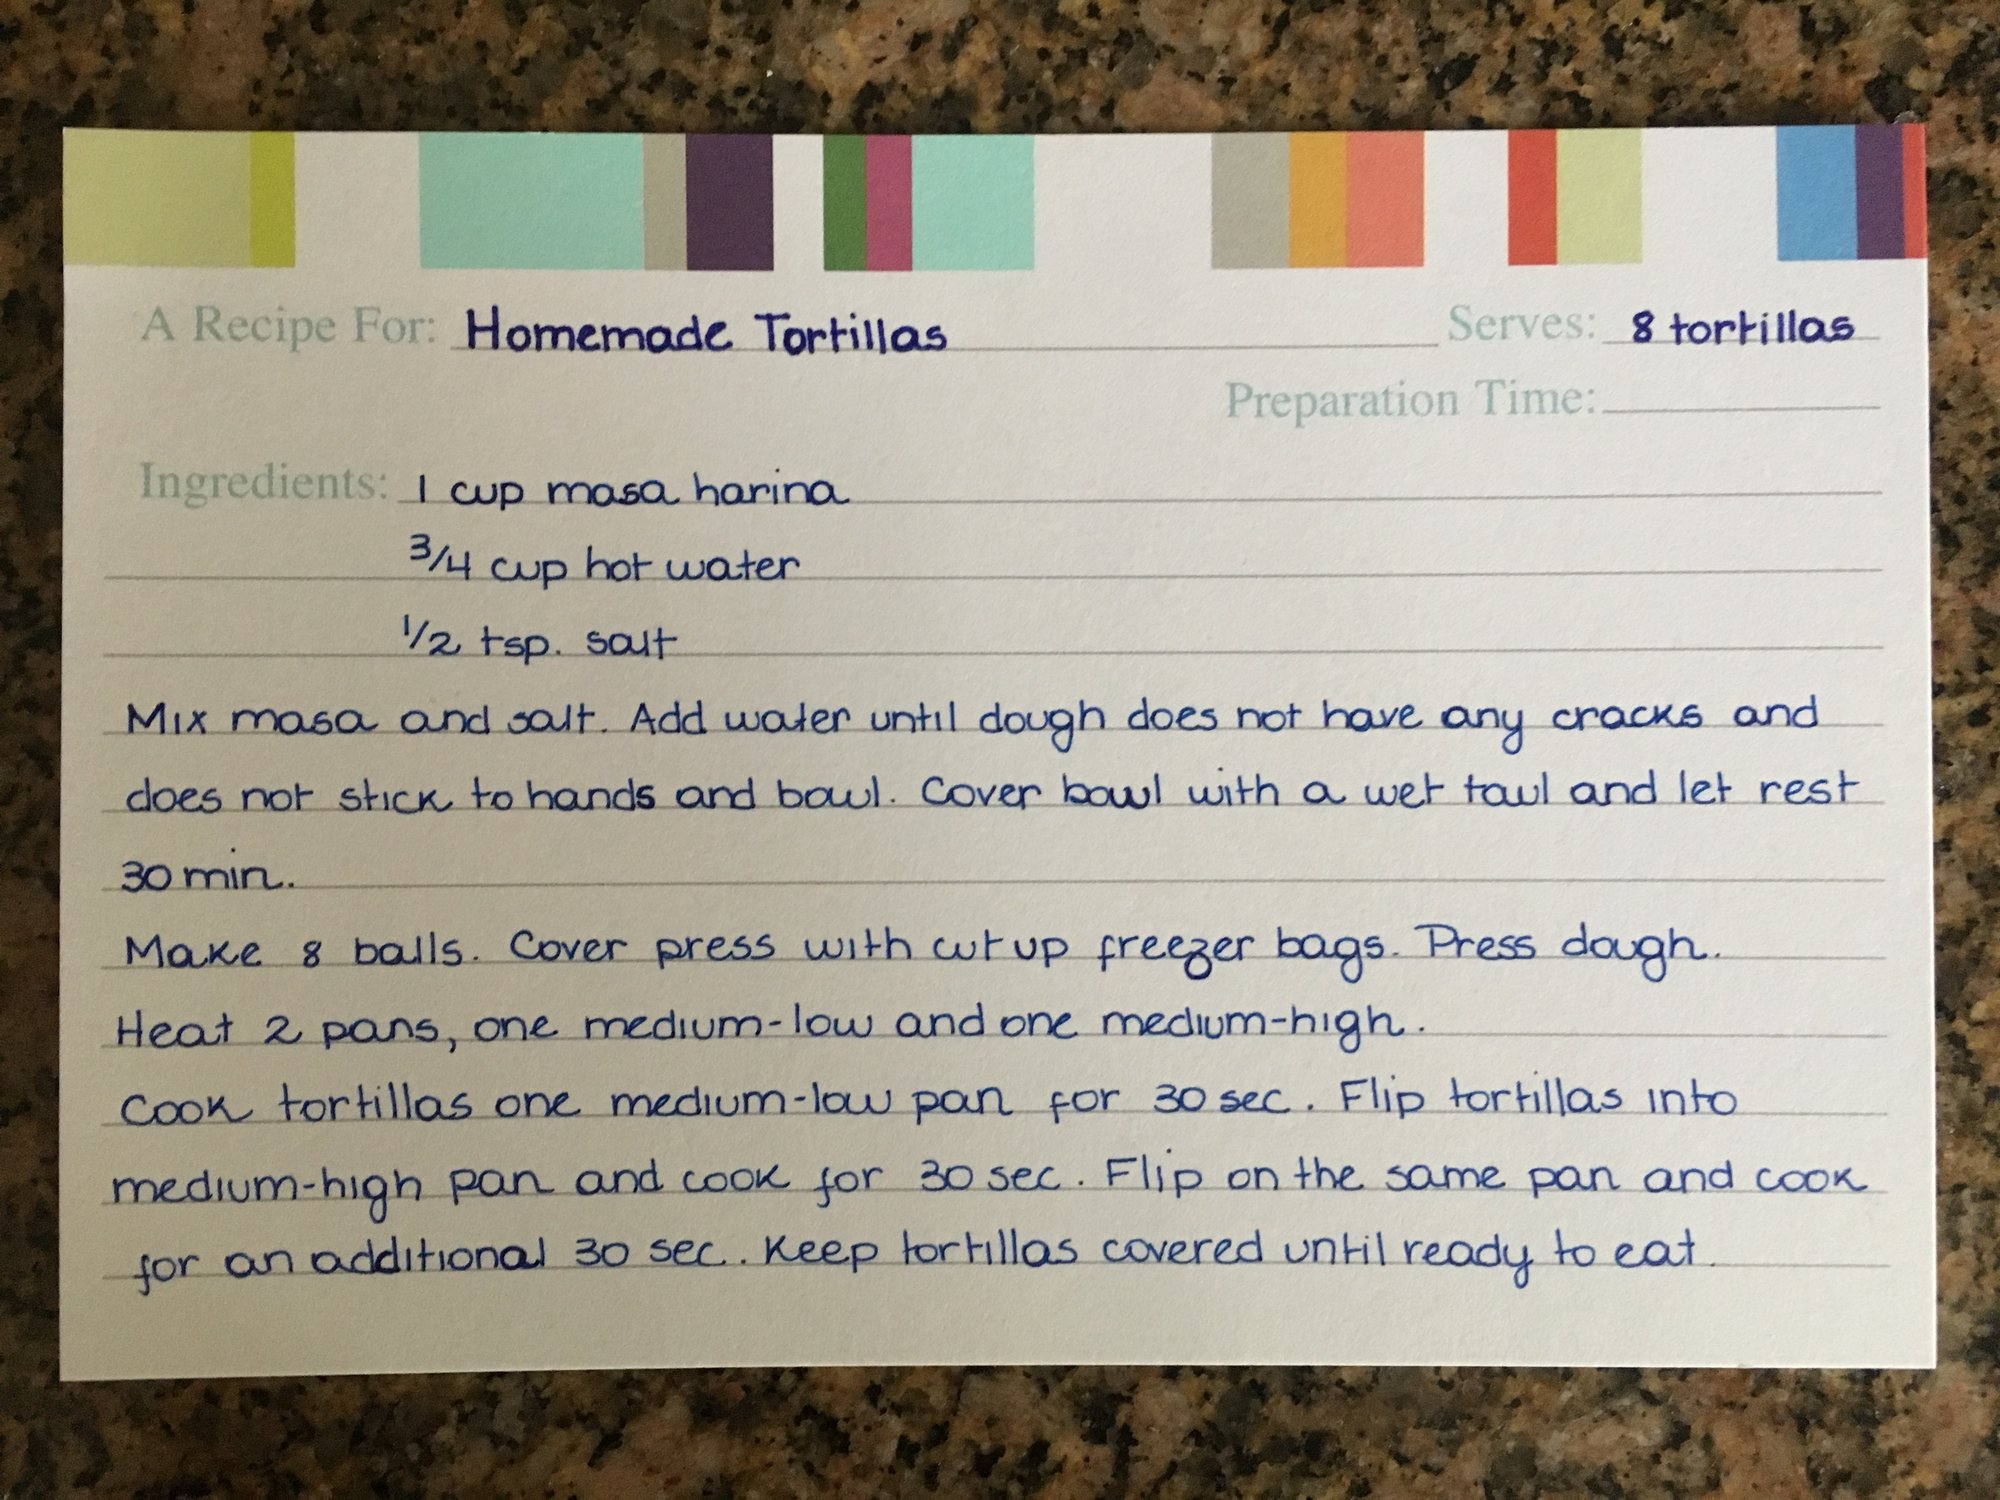 A Recipe For: Homemade Tortillas Serves: 8 tortillas
Preparation Time:
Ingredients: 1 cup masa harina
3/4 cup hot water
1/2 tsp. salt
Mix masa and salt. Add water until dough does not have any cracks and
does not stick to hands and bowl. Cover bowl with a wet towl and let rest
30 min.
Make 8 balls. Cover press with cut up freezer bags. Press dough.
Heat 2 pans, one medium-low and one medium-high.
Cook tortillas one medium-low pan for 30 sec. Flip tortillas into
medium-high pan and cook for 30 sec. Flip on the same pan and cook
for an additional 30 sec. Keep tortillas covered until ready to eat.